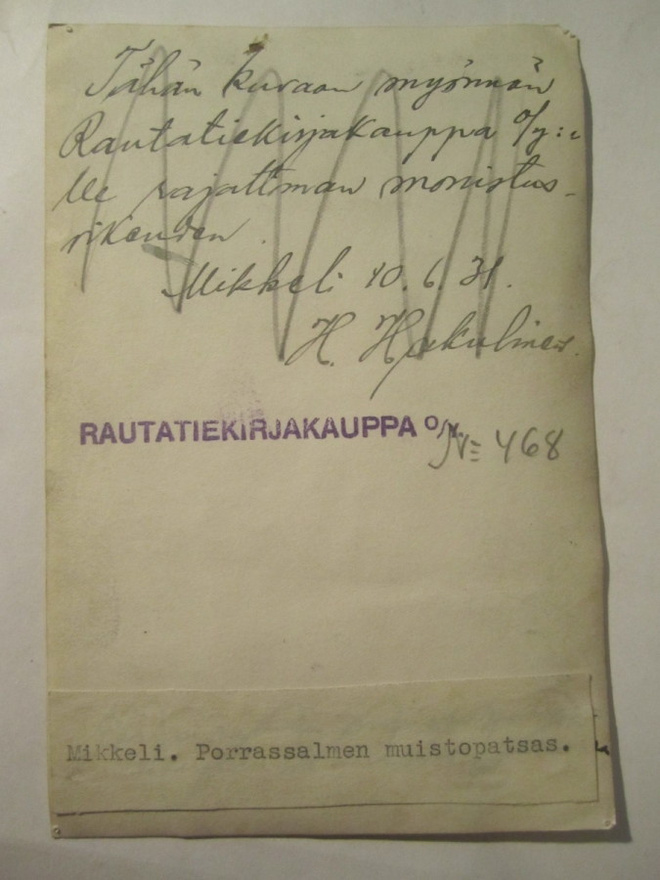 Tähän kuvaan myönnän
Rautatiekirjakauppa O/y:l
lle rajattman monistus-
oikeuden.
Mikkeli 10.6.31.
H. Hakulinen.
RAUTATIEKIRJAKAUPPA O/Y.
№ 468
Mikkeli. Porrassalmen muistopatsas.